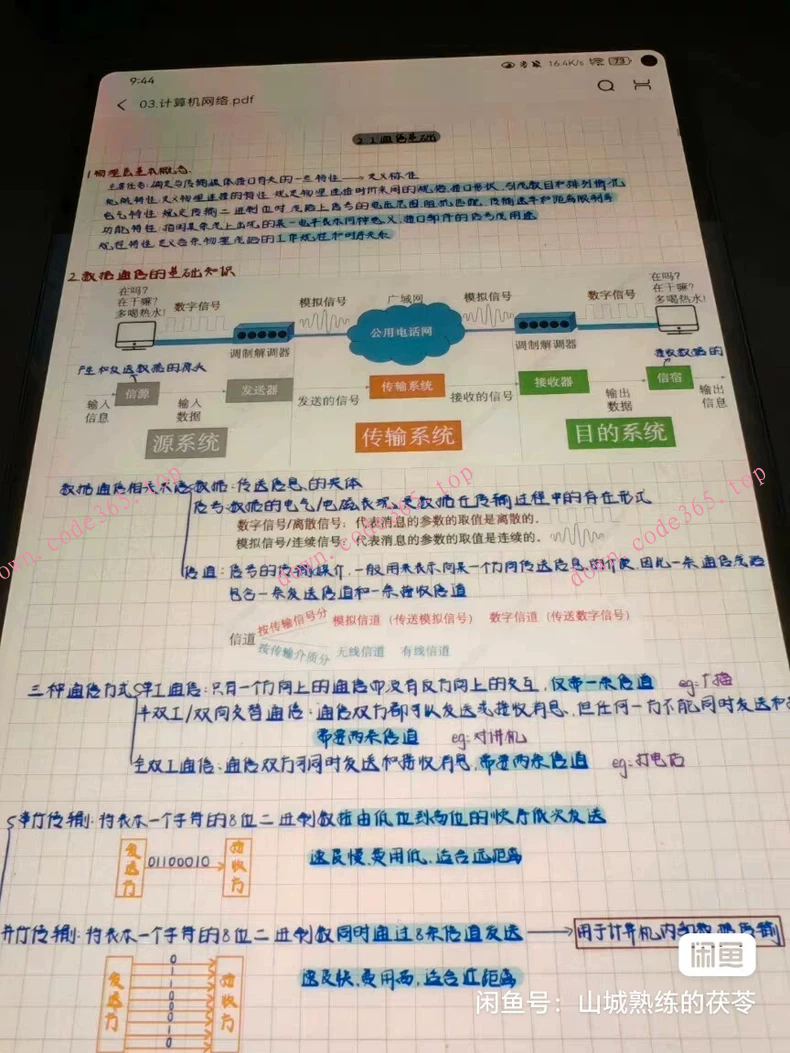 9:44
16.4K/s
73
03.计算机网络.pdf
2.1 通信基础
1.物理层基本概念
主要任务:确定与传输媒体接口有关的一些特性→定义标准
机械特性:定义物理连接的特性,规定物理连接时所采用的规格,接口形状,引线数目和排列情况
电气特性:规定传输二进制位时,线路上信号的电压范围,阻抗匹配,传输速率和距离限制等
功能特性:指明某条线上出现的某一电平表示何种意义,接口部件的信号线用途
规程特性:定义各条物理线路的工作规程和时序关系
2.数据通信的基础知识
在吗?
在干嘛?
多喝热水!
数字信号
模拟信号
广域网
模拟信号
数字信号
在吗?
在干嘛?
多喝热水!
公用电话网
调制解调器
调制解调器
产生和发送数据的源头
接收数据的
信源
发送器
传输系统
接收器
信宿
输入信息
输入数据
发送的信号
接收的信号
输出数据
输出信息
源系统
传输系统
目的系统
数据通信相关术语 数据:传送信息的实体
信号:数据的电气/电磁表现,是数据在传输过程中的存在形式
数字信号/离散信号:代表消息的参数的取值是离散的.
模拟信号/连续信号:代表消息的参数的取值是连续的.
down.code365.top
down.code365.top
down.code365.top
信道:信号的传输媒介,一般用来表示向某一个方向传送信息的介质,因此一条通信线路
包含一条发送信道和一条接收信道
信道
按传输信号分 模拟信道(传送模拟信号) 数字信道(传送数字信号)
按传输介质分 无线信道 有线信道
三种通信方式 单工通信:只有一个方向上的通信而没有反方向上的交互,仅需一条信道 eg:广播
半双工/双向交替通信:通信双方都可以发送或接收消息,但任何一方不能同时发送和
需要两条信道 eg:对讲机
全双工通信:通信双方可同时发送和接收消息,需要两条信道 eg:打电话
串行传输:将表示一个字符的8位二进制数按由低位到高位的顺序依次发送
发送方 01100010 接收方
速度慢,费用低,适合远距离
并行传输:将表示一个字符的8位二进制数同时通过8条信道发送→用于计算机内部数据传输
发送方
0
1
1
0
0
0
1
0
接收方
速度快,费用高,适合近距离
闲鱼
闲鱼号:山城熟练的茯苓